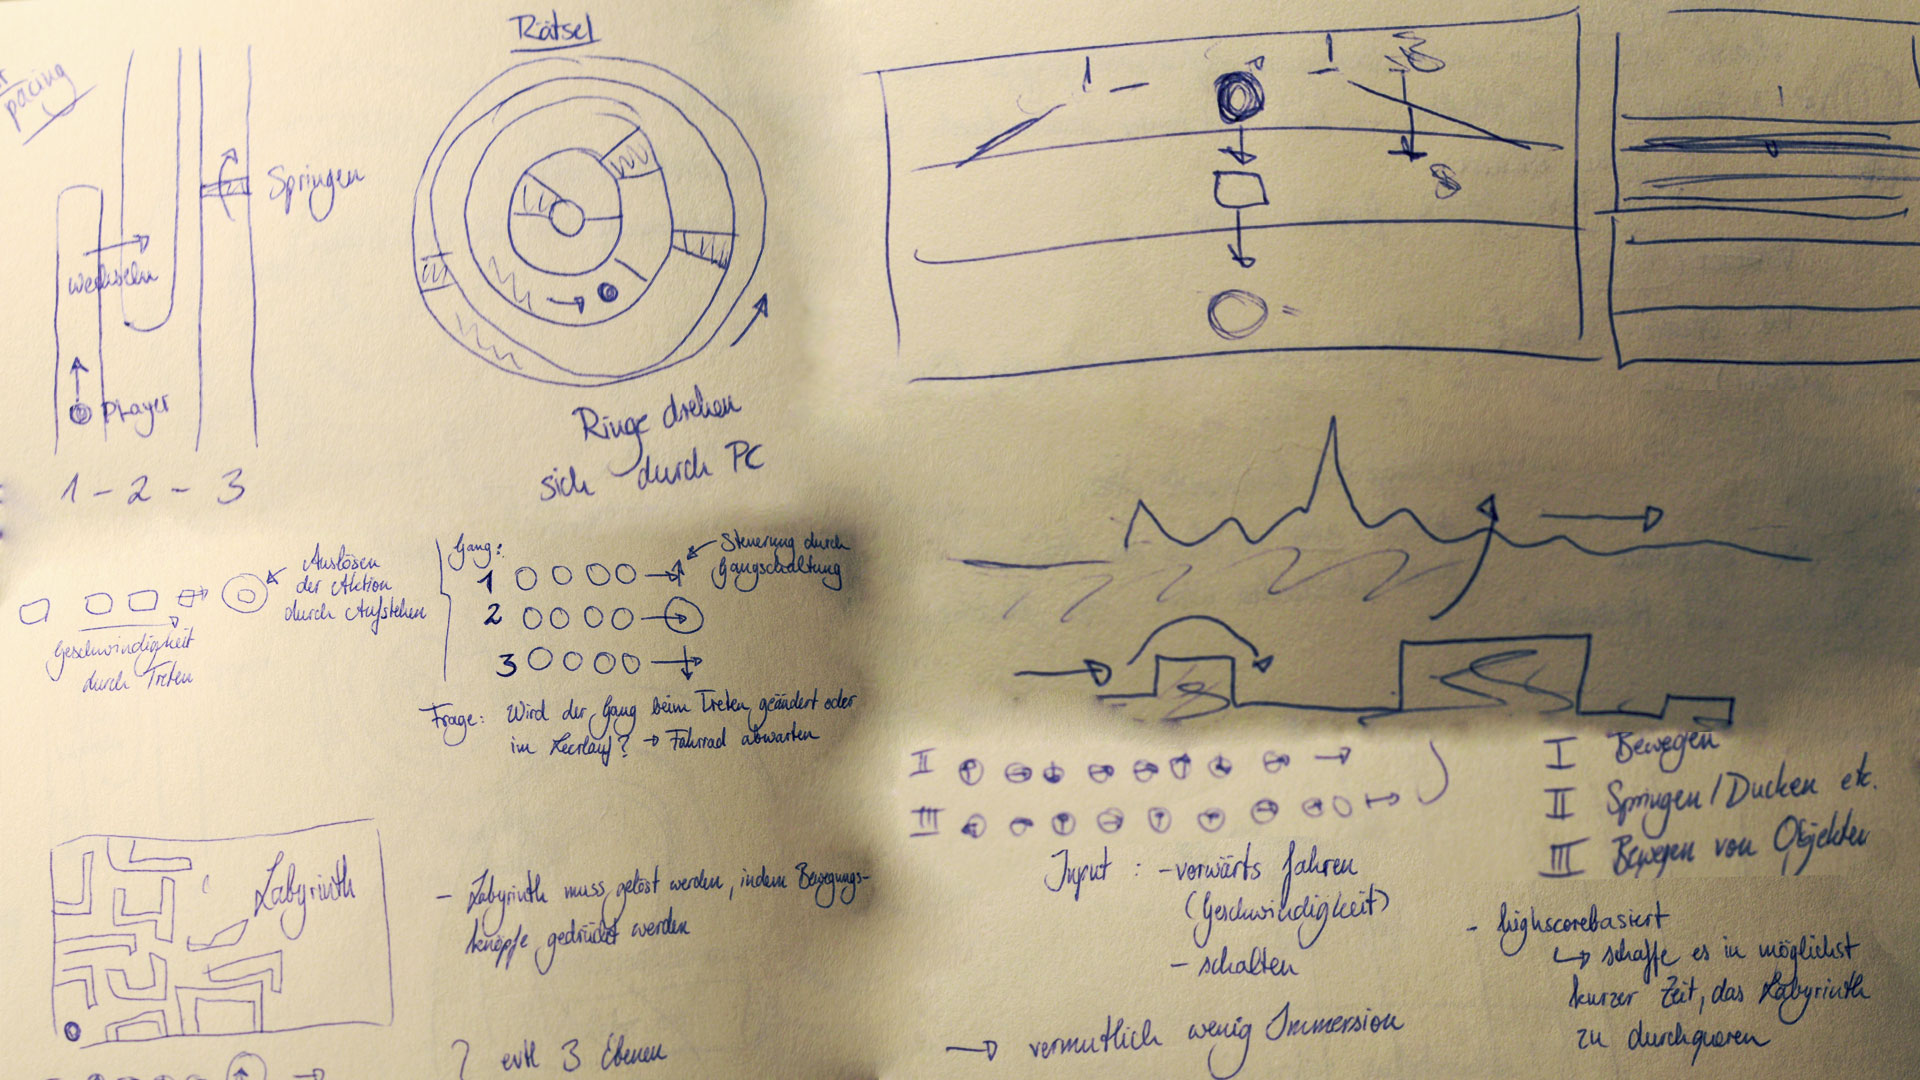 pacing
Springen
wechseln
Player
1 - 2 - 3
Rätsel
Ringe drehen
sich durch PC
Auslösen
der Aktion
durch Aufstehen
Geschwindigkeit
durch Treten
Gang:
1
2
3
Steuerung durch
Gangschaltung
Frage: Wird der Gang beim Treten geändert oder
im Leerlauf? → Fahrrad abwarten
Labyrinth
- Labyrinth muss gelöst werden, indem Bewegungs-
knöpfe gedrückt werden
? evtl 3 Ebenen
II
III
I Bewegen
II Springen/Ducken etc.
III Bewegen von Objekten
Input: - vorwärts fahren
(Geschwindigkeit)
- schalten
→ vermutlich wenig Immersion
- highscorebasiert
↳ schaffe es in möglichst
kurzer Zeit, das Labyrinth
zu durchqueren